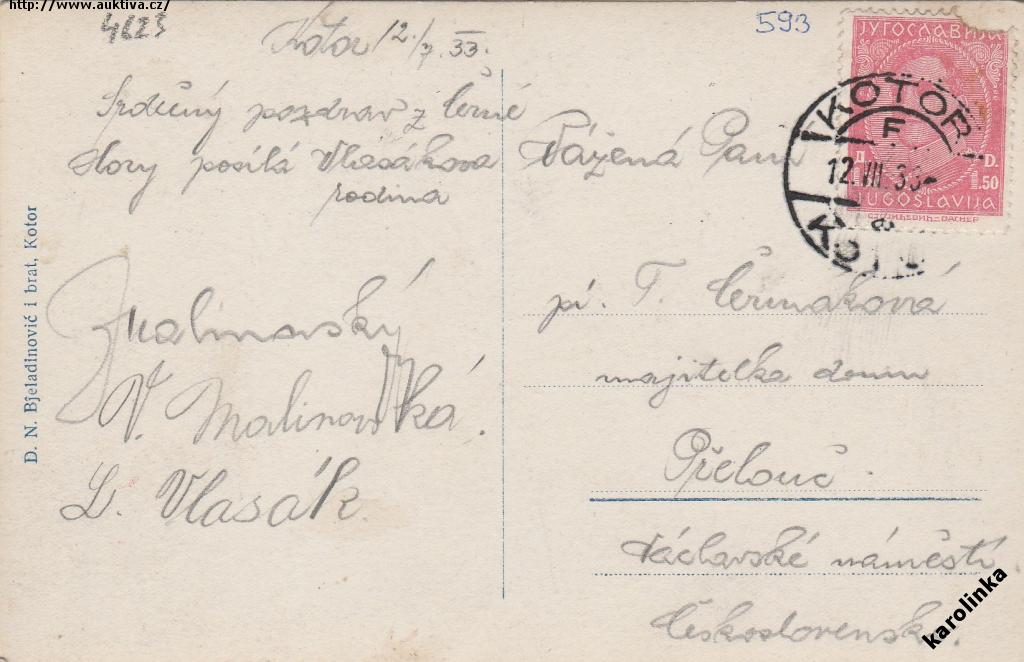 http://www.auktiva.cz/
4623
593
Kotor 12./7. 33.
Srdečný pozdrav z Černé
Hory posílá Vlasákova
rodina
Malinovský
V. Malinovská.
L. Vlasák.
D. N. Bjeladinović i brat, Kotor
ЈУГОСЛАВИЈА
Д. D.
1.50
JUGOSLAVIJA
KOTOR
F
12.VII.33
Vážená Paní
pí. T. Čermáková
majitelka domu
Přelouč.
Václavské náměstí
Československo.
karolinka